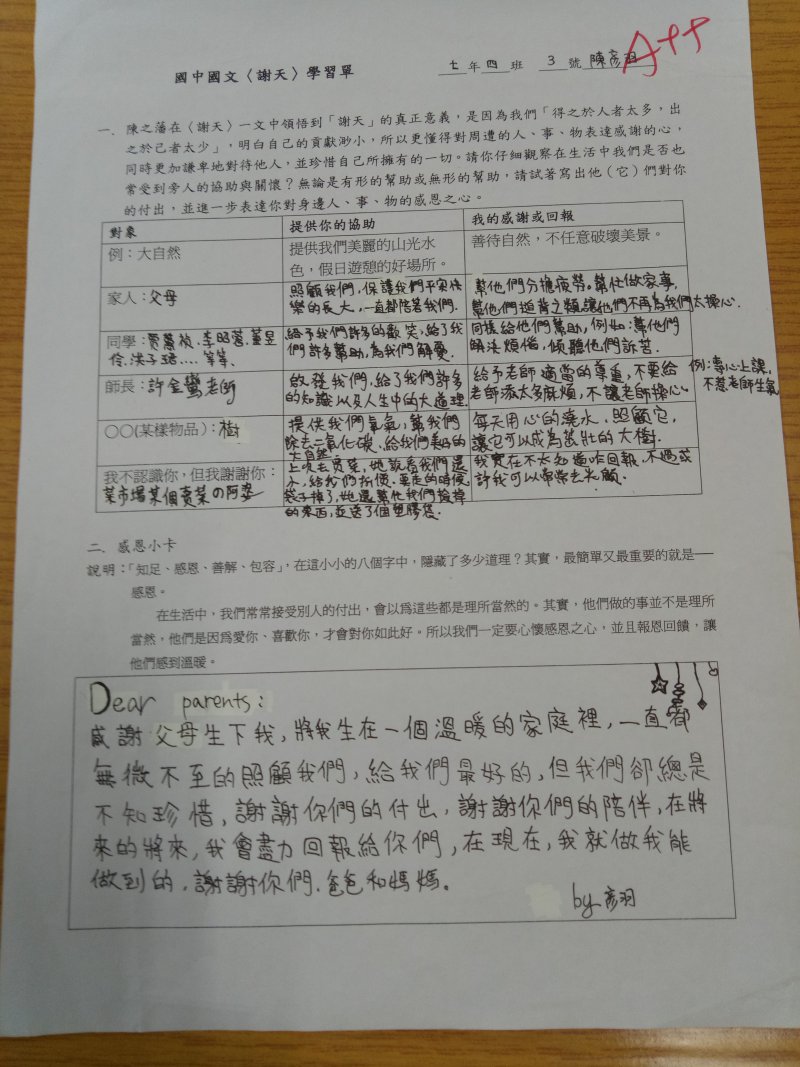 國中國文〈謝天〉學習單
七 年 四 班 3 號 陳彥羽
A++
一. 陳之藩在〈謝天〉一文中領悟到「謝天」的真正意義，是因為我們「得之於人者太多，出
之於己者太少」，明白自己的貢獻渺小，所以更懂得對周遭的人、事、物表達感謝的心，
同時更加謙卑地對待他人，並珍惜自己所擁有的一切。請你仔細觀察在生活中我們是否也
常受到旁人的協助與關懷？無論是有形的幫助或無形的幫助，請試著寫出他（它）們對你
的付出，並進一步表達你對身邊人、事、物的感恩之心。
對象 提供你的協助 我的感謝或回報
例：大自然
提供我們美麗的山光水
色，假日遊憩的好場所。
善待自然，不任意破壞美景。
家人：父母
照顧我們，保護我們平安快
樂的長大，一直都陪著我們.
幫他們分擔疲勞。幫忙做家事.
幫他們搥背之類讓他們不再為我們太操心.
同學：賈蕙禎.李昭蓉.董昱
伶.洪子珺....等等.
給予我們許多的歡笑，給了我
們許多幫助，為我們解憂.
同樣給他們幫助，例如：幫他們
解決煩惱，傾聽他們訴苦.
師長：許金鶯老師
啟發我們，給了我們許多
的知識以及人生中的大道理.
給予老師適當的尊重，不要給
老師添太多麻煩，不讓老師操心.
例：專心上課，
不惹老師生氣
○○(某樣物品)：樹
提供我們氧氣，幫我們
除去二氧化碳，給我們美好的
大自然.
每天用心的澆水，照顧它，
讓它可以成為茁壯的大樹.
我不認識你，但我謝謝你：
菜市場某個賣菜の阿婆
上次去買菜，她說看我們還
小，給我們折價.要走的時候
袋子掉了，她還幫忙我們撿掉
的東西，並送了個塑膠袋.
我實在不太知道咋回報，不過或
許我可以常常去光顧.
二. 感恩小卡
說明：「知足、感恩、善解、包容」，在這小小的八個字中，隱藏了多少道理？其實，最簡單又最重要的就是──
感恩。
在生活中，我們常常接受別人的付出，會以為這些都是理所當然的。其實，他們做的事並不是理所
當然，他們是因為愛你、喜歡你，才會對你如此好。所以我們一定要心懷感恩之心，並且報恩回饋，讓
他們感到溫暖。
Dear parents:
感謝父母生下我，將我生在一個溫暖的家庭裡，一直都
無微不至的照顧我們，給我們最好的，但我們卻總是
不知珍惜，謝謝你們的付出，謝謝你們的陪伴，在將
來的將來，我會盡力回報給你們，在現在，我就做我能
做到的，謝謝你們.爸爸和媽媽。
by.彥羽